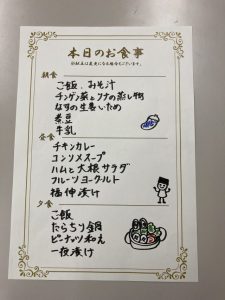 本日のお食事
※献立は変更になる場合もございます。
朝食
ご飯、みそ汁
チンゲン菜とツナの蒸し物
なすの生姜いため
煮豆
牛乳
昼食
チキンカレー
コンソメスープ
ハムと大根サラダ
フルーツヨーグルト
福神漬け
夕食
ご飯
たらちり鍋
ピーナッツ和え
一夜漬け